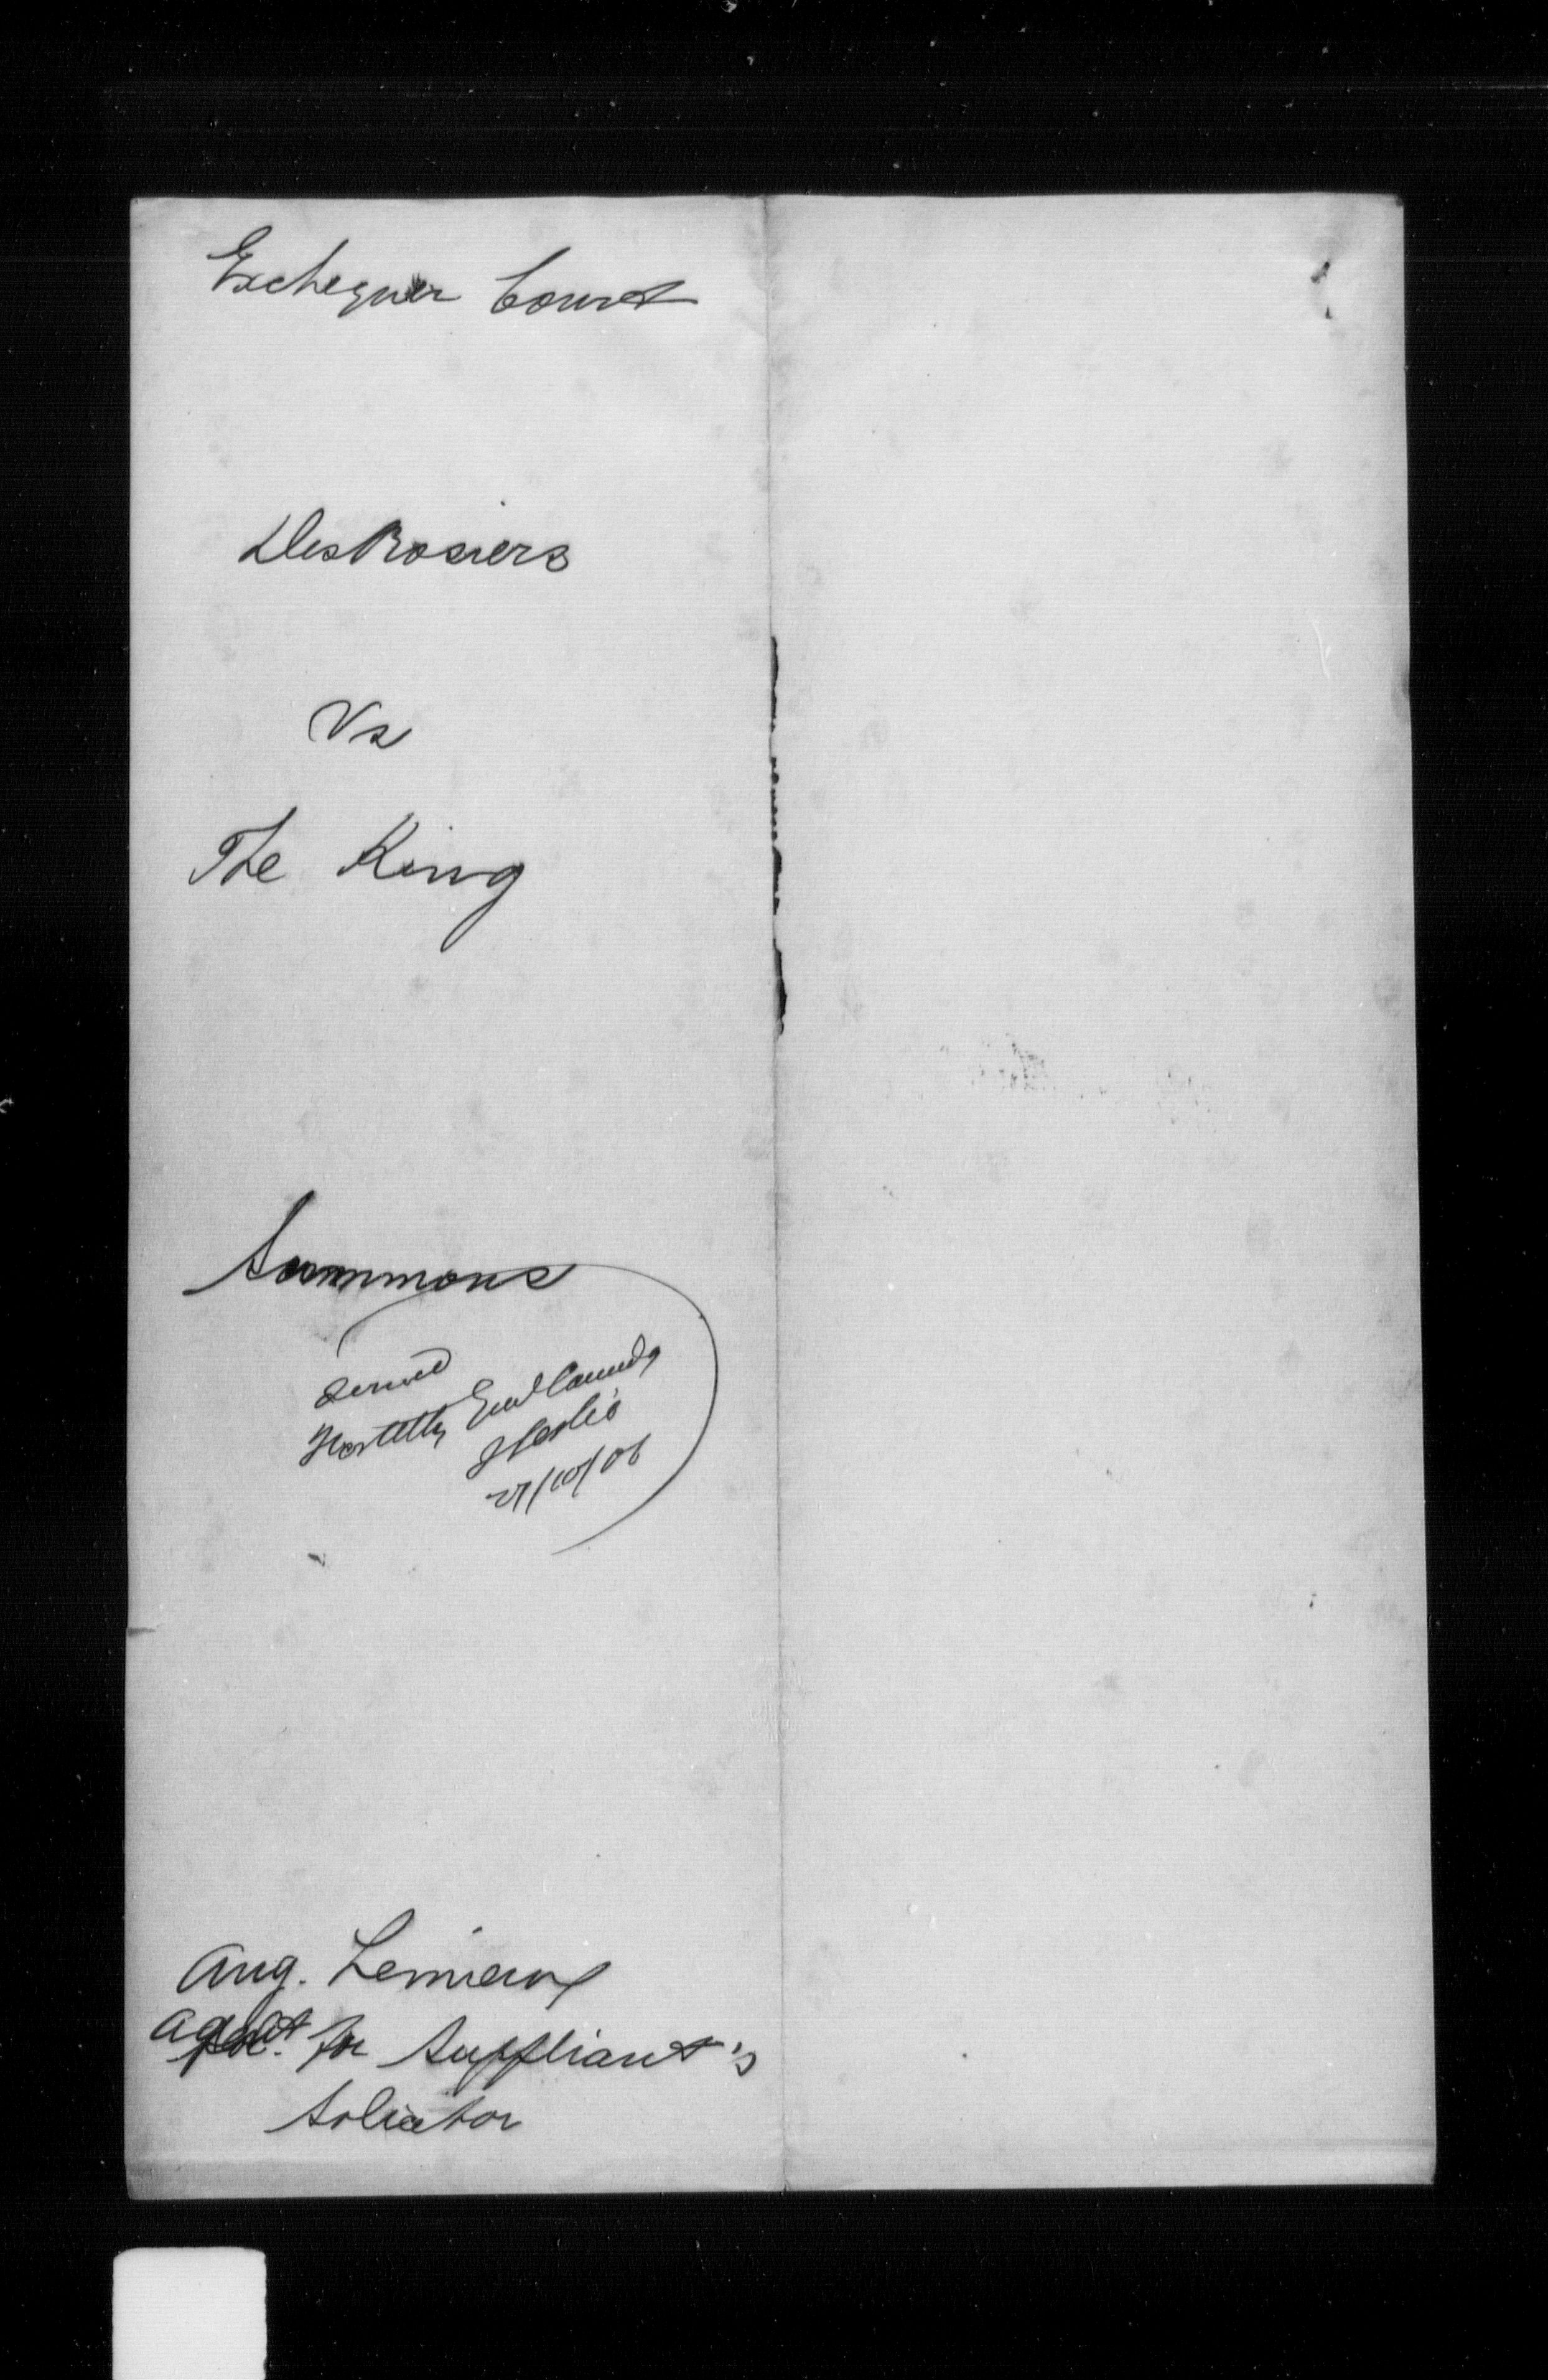 Exchequer Court
DesRosiers
Vs
The King
Summons
Served
27/10/06
Aug. Lemieux
Agent for Suppliant's
Solicitor